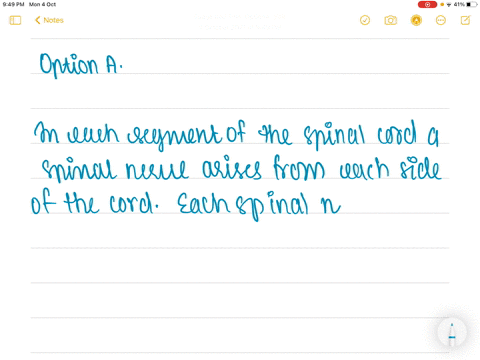 9:49 PM Mon 4 Oct
41%
Notes
Option A.
In each segment of the spinal cord a
spinal nerve arises from each side
of the cord. Each spinal n